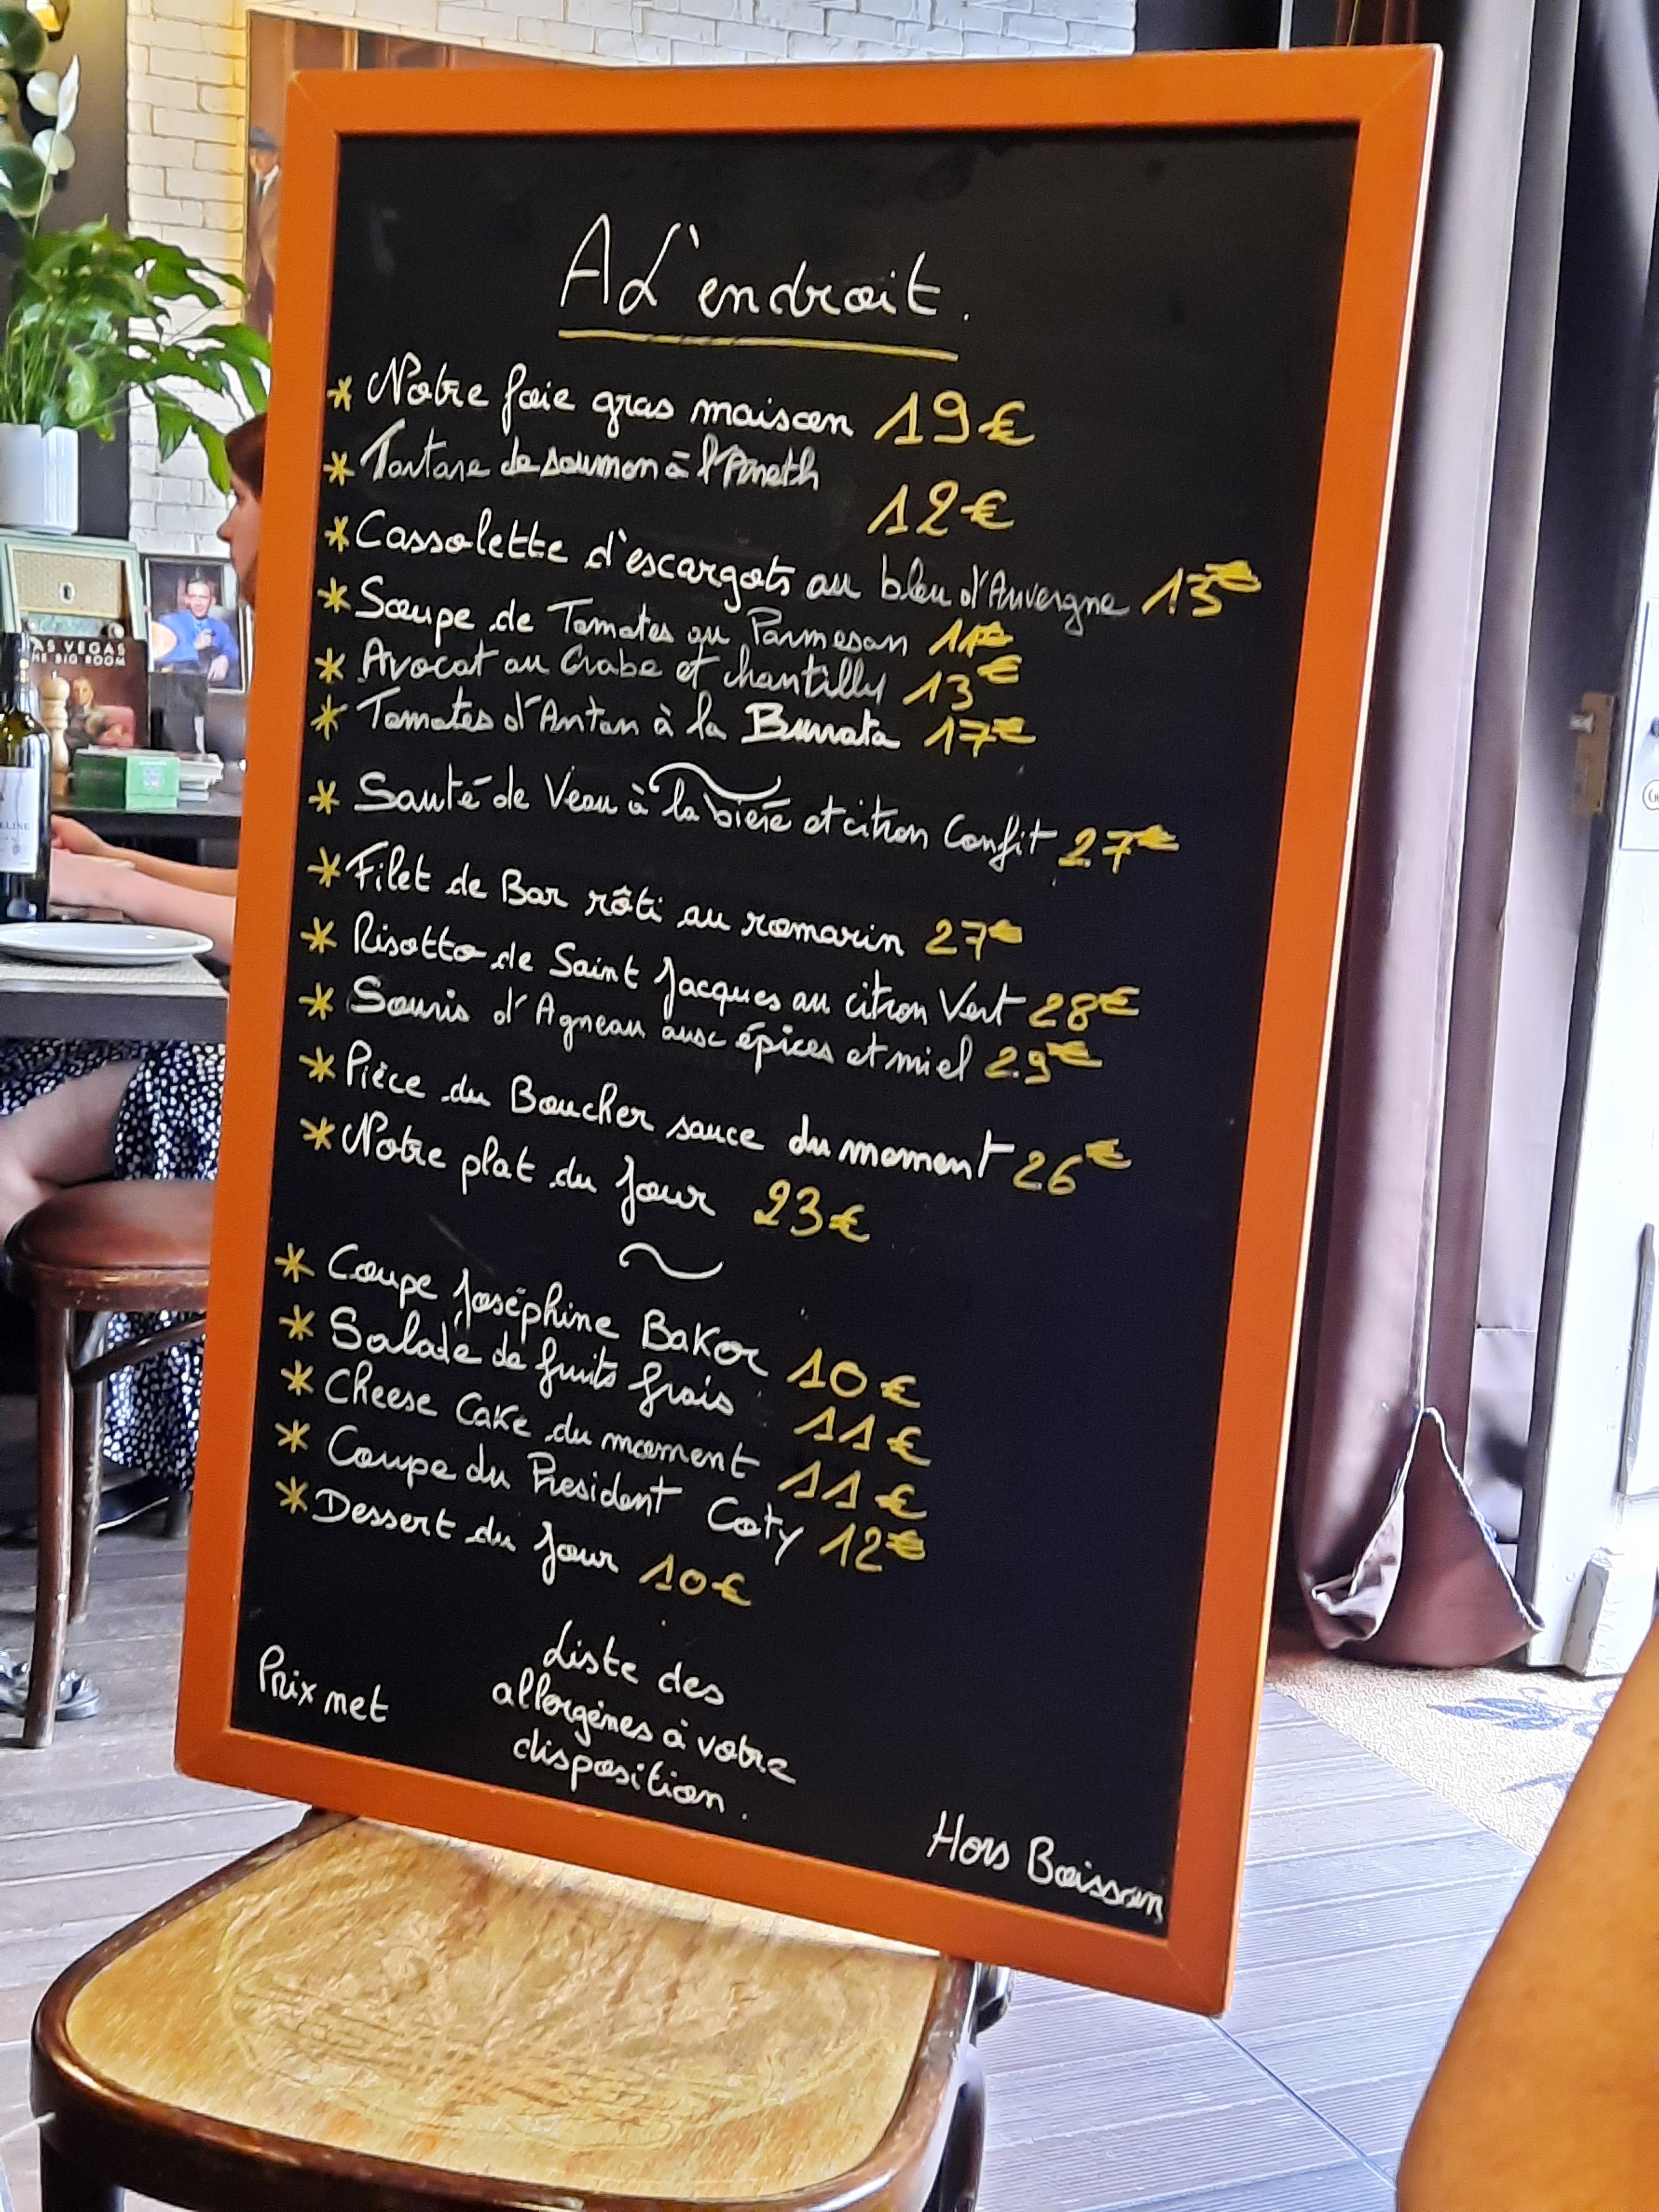 A L'endroit.
* Notre foie gras maison 19€
* Tartare de saumon à l'Aneth 12€
* Cassolette d'escargots au bleu d'Auvergne 13€
* Soupe de Tomates au Parmesan 11€
* Avocat au Crabe et chantilly 13€
* Tomates d'Antan à la Burrata 17€
~
* Sauté de Veau à la bière et citron Confit 27€
* Filet de Bar rôti au romarin 27€
* Risotto de Saint Jacques au citron Vert 28€
* Souris d'Agneau aux épices et miel 29€
* Pièce du Boucher sauce du moment 26€
* Notre plat du Jour 23€
~
* Coupe Joséphine Baker 10€
* Salade de fruits frais 11€
* Cheese Cake du moment 11€
* Coupe du President Coty 12€
* Dessert du Jour 10€
Liste des
allergènes à votre
disposition.
Prix net
Hors Boisson
AS VEGAS
HE BIG ROOM